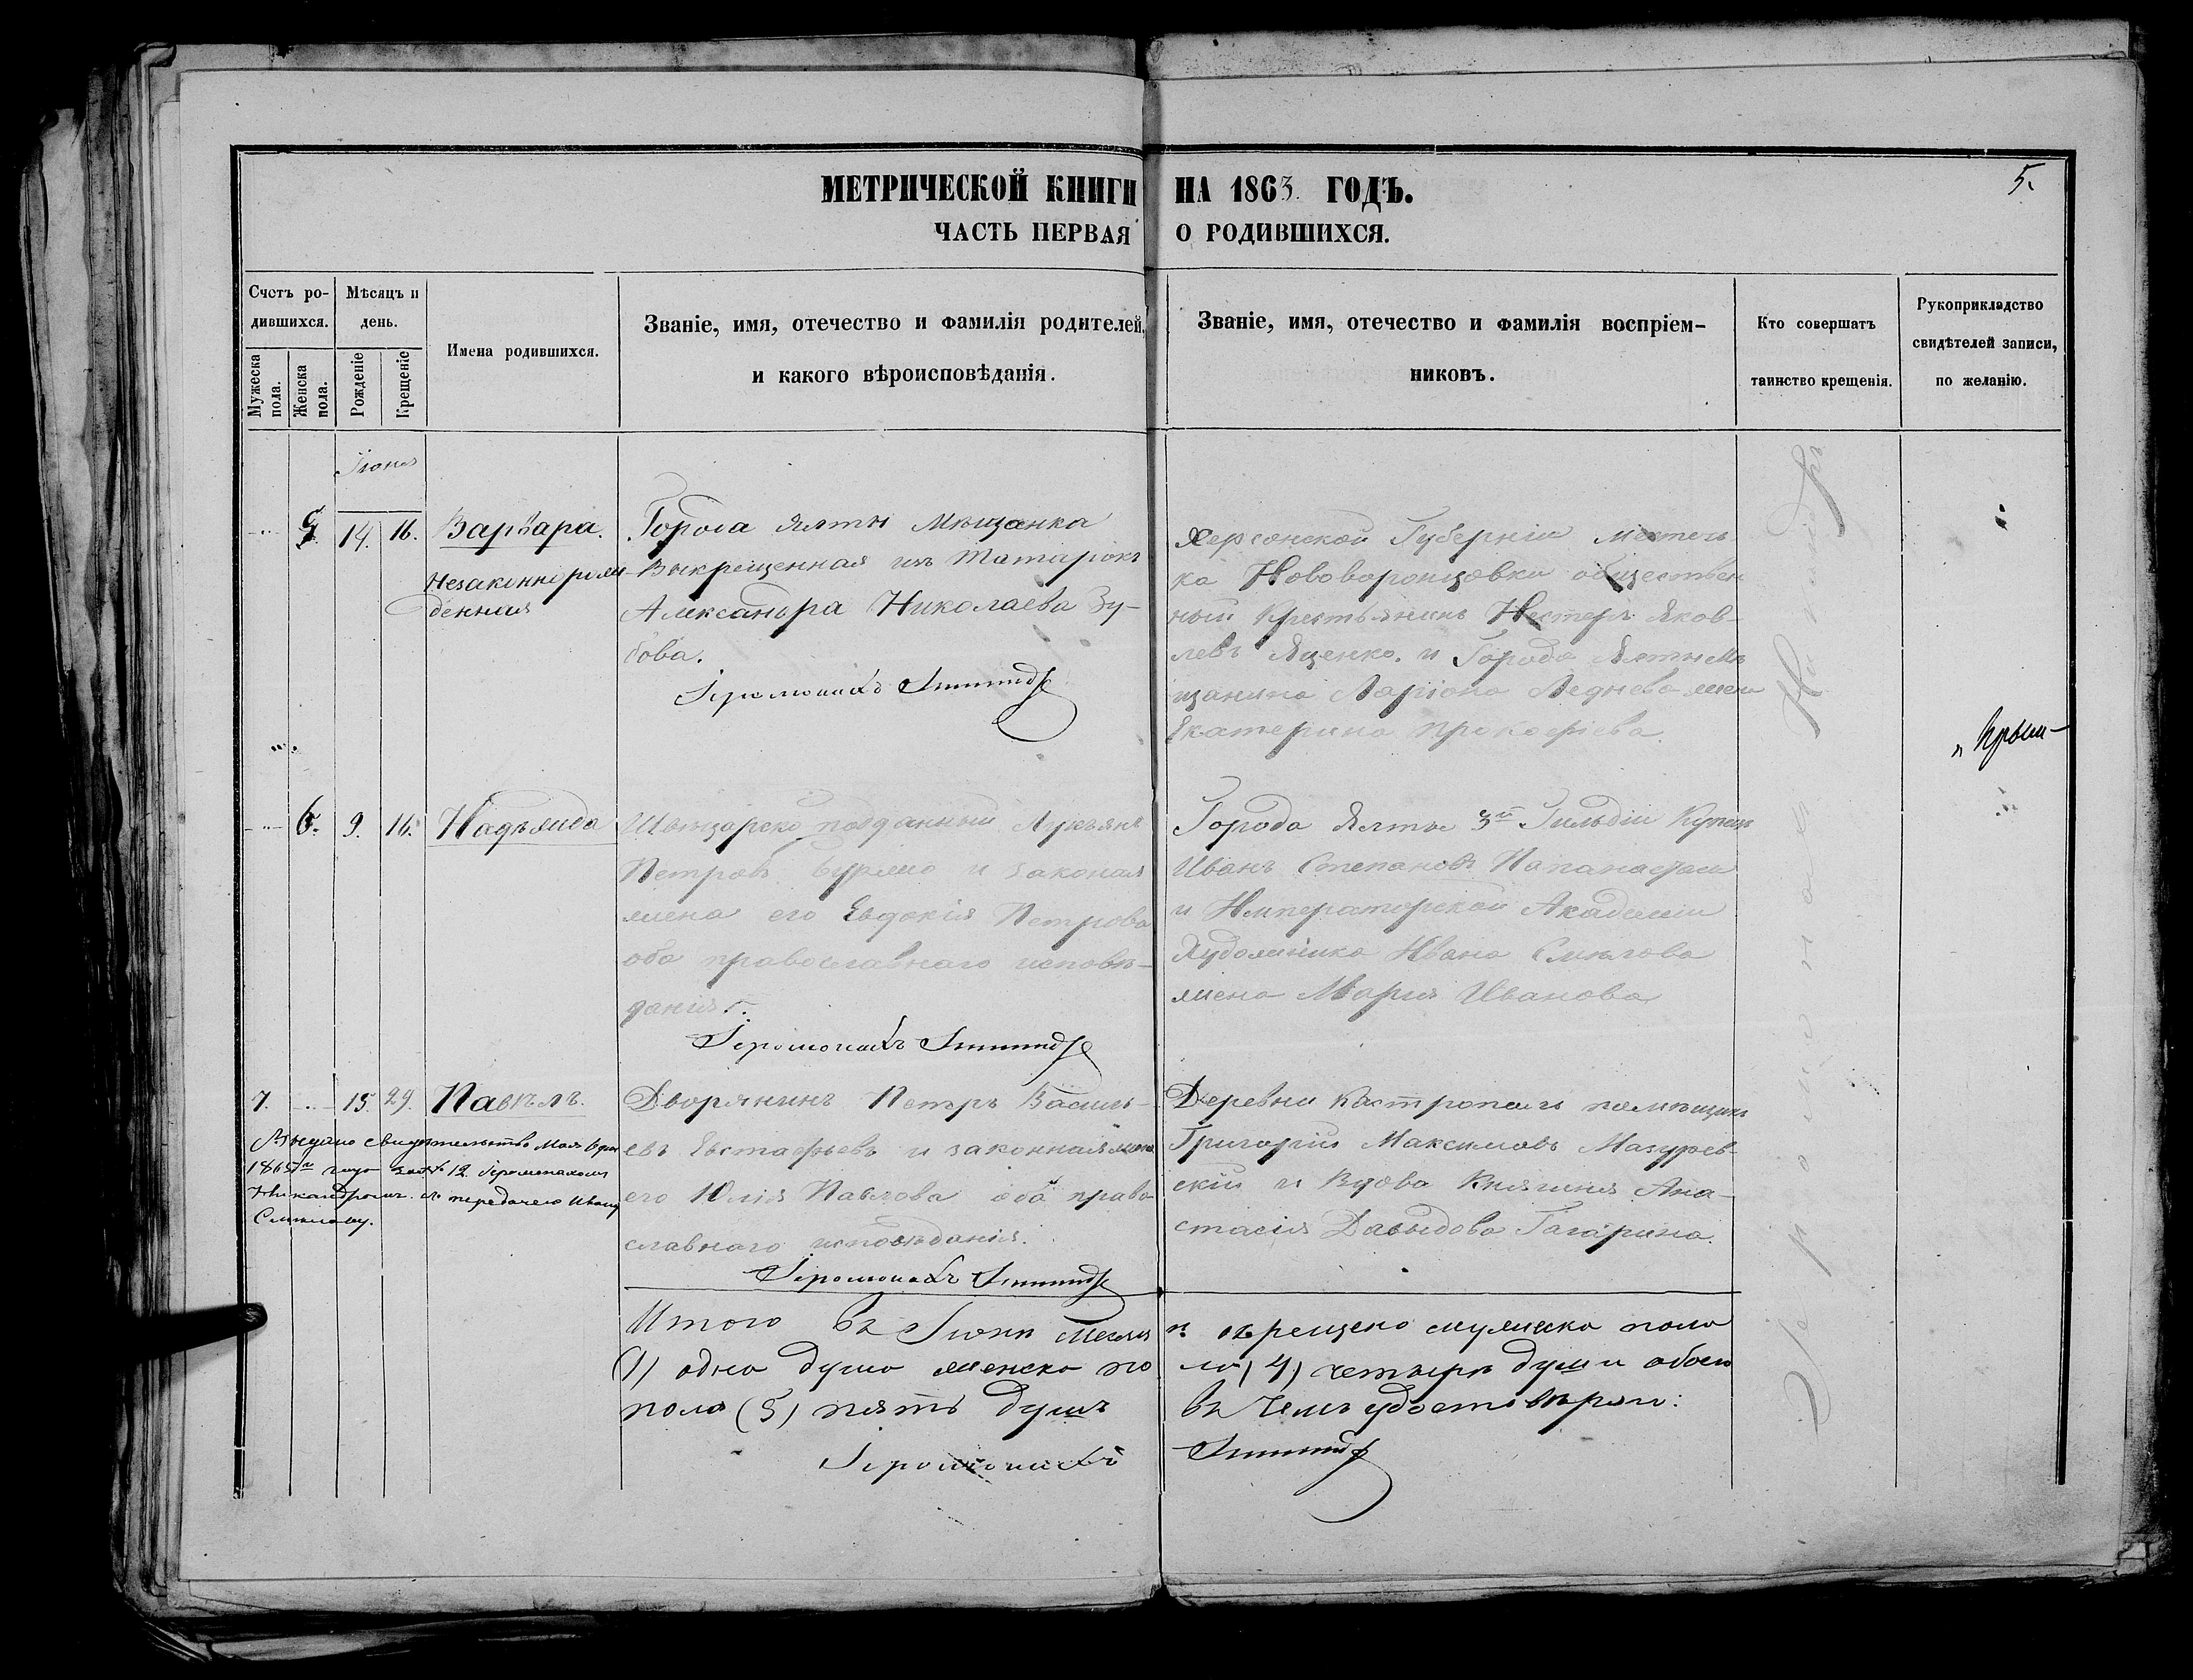 МЕТРИЧЕСКОЙ КНИГИ НА 1863. ГОДЪ.
5.
ЧАСТЬ ПЕРВАЯ О РОДИВШИХСЯ.
Счетъ ро-
дившихся.
Мужеска пола.
Женска пола.
Мѣсяцъ и
день.
Рожденіе
Крещеніе
Имена родившихся.
Званіе, имя, отечество и фамилія родителей,
и какого вѣроисповѣданія.
Званіе, имя, отечество и фамилія воспріем-
никовъ.
Кто совершатъ
таинство крещенія.
Рукоприкладство
свидѣтелей записи,
по желанію.
Іюня
5. 14. 16. Варвара.
Незаконнорож-
денная
Города Ялты Мѣщанка
Выкрещенная изъ Татарокъ
Александра Николаева Зу-
бова.
Іеромонахъ
Херсонской Губерніи местеч
ка Нововоронцовки обществен
ный Крестьянинъ Нестеръ Яков-
левъ Яценко. и Города Ялты Мѣ
щанина Ларіона Леднева жена
Екатерина Прокофіева.
6. 9. 16. Надѣжда
Швѣцарско подданный Лукьянъ
Петровъ и законая
жена его Евдокія Петрова
оба православнаго исповѣ-
данія.
Іеромонахъ
Города Ялты 3й Гильдіи Купецъ
Иванъ Степановъ
и Императорской Академіи
Художника Ивана Смѣлова
жена Марія Иванова
7. 15. 29. Павѣлъ.
Выдано свидѣтельство Мая
1865го года за № 12. Іеромонахомъ
Никандромъ. передачею Ивану
Смѣлову.
Дворянинъ Петръ Василь-
евъ Евстафьевъ и законная жена
его Юлія Павлова оба право-
славнаго исповѣданія.
Іеромонахъ
Деревни Кастрополь помѣщикъ
Григорій Максимовъ Мазурев-
скій и Вдова Княгиня Ана-
стасія Давыдова Гагарина.
Итого въ Іюнѣ Месяцѣ окрещено мужеска пола
(1) одна душа женска по ла (4) четырѣ души обоего
пола (5) пять душъ въ чемъ удостовѣряю:
Іеромонахъ